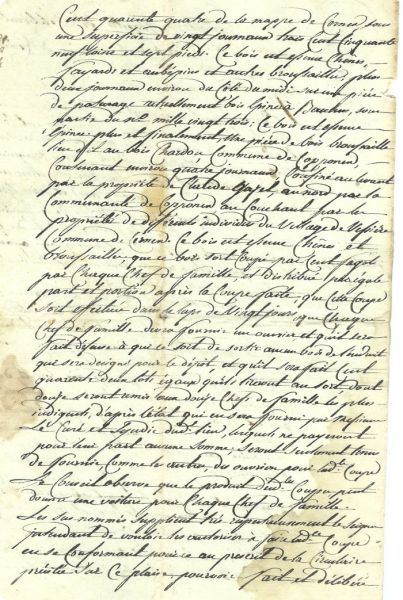 Cent quarante quatre de la mappe de Cernex sous
une superficie de vingt journaux trois Cent Cinquante
neuf toise et sept pieds. Ce bois est essence Chênes,
fayards et aubepins et autres brousailles, plus
deux journaux environ du Côté du midi sur une pièce
de paturage actuellement bois épines à Bauchex, sous
partie du no. mille vingt trois; Ce bois est essence
épines plus et finalement, une pièce de bois brousaille
lieu dit au bois Chardon Commune de Copponex
Contenant environ quatre journaux, Confiné au levant
par la propriété de Claude Gaget, au nord par la
Communauté de Copponex au Couchant par les
propriétés de différents individus du village de
Commune de Cernex. Ce bois est essence Chênes et
brousailles, que ce bois soit Coupé par Cent fagots
par Chaque Chef de famille, et distribué par égale
part et portion après la Coupe faite, que cette Coupe
soit effectuée dans le laps de vingt jours, que Chaque
Chef de famille devra fournir un ouvrier et qu'il sera
fait défense à qui ce soit de sortir aucun bois de l'endroit
qui sera désigné pour le dépôt, et qu'il sera fait Cent
quarante deux lots égaux qu'ils tireront au sort dont
douze seront remis aux douze Chefs de famille les plus
indigents, d'après l'état qui en sera fourni par Messieurs
Le Curé et Syndic dud. lieu, lesquels ne payeront
pour leur part aucune somme, seront seulement tenus
de fournir Comme les autres, des ouvriers pour lad.te Coupe
Le Conseil observe que le produit desd.tes Coupes peut
donner une voiture pour Chaque Chef de famille.
Les sus nommés supplient très respectueusement le Seigneur
intendant de vouloir les autoriser à faire lad.te Coupe
en se Conformant pour ce au prescrit de la Circulaire
Sur Ce plaise pourvoir. fait et délibéré